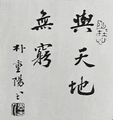 與天地
無窮
朴重陽